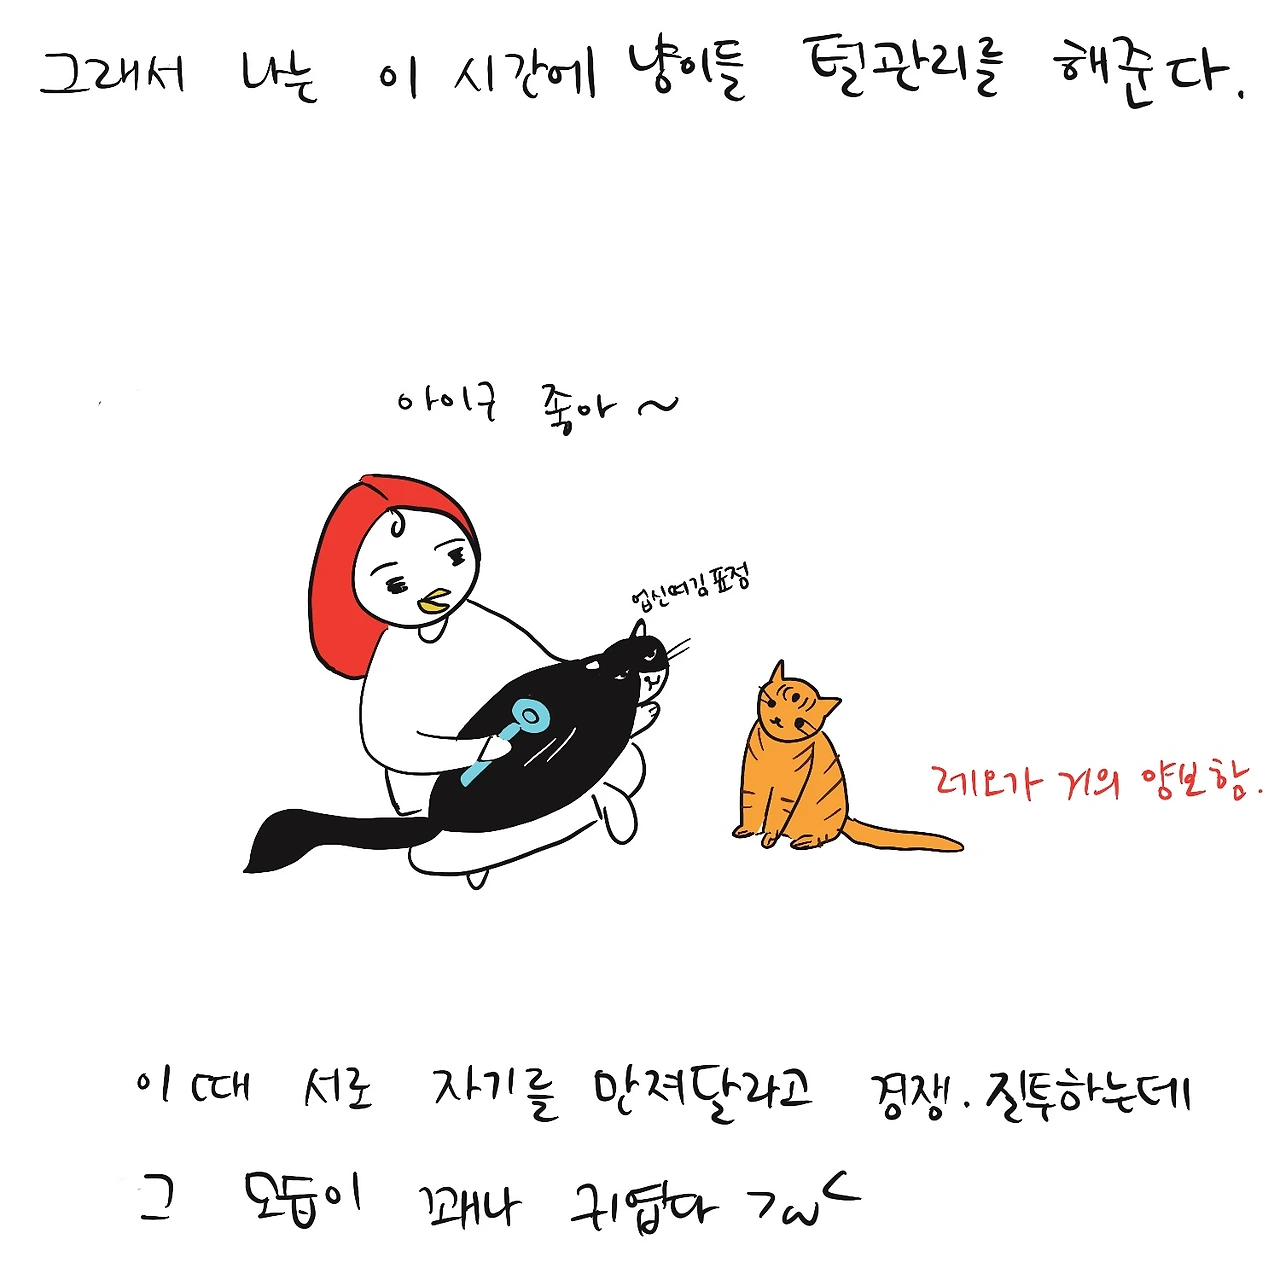 그래서 나는 이 시간에 냥이들 털관리를 해준다.
아이구 좋아~
업신여김 표정
레오가 거의 양보함.
이때 서로 자기를 만져달라고 경쟁.질투하는데
그 모듭이 꽤나 귀엽다 >ω<